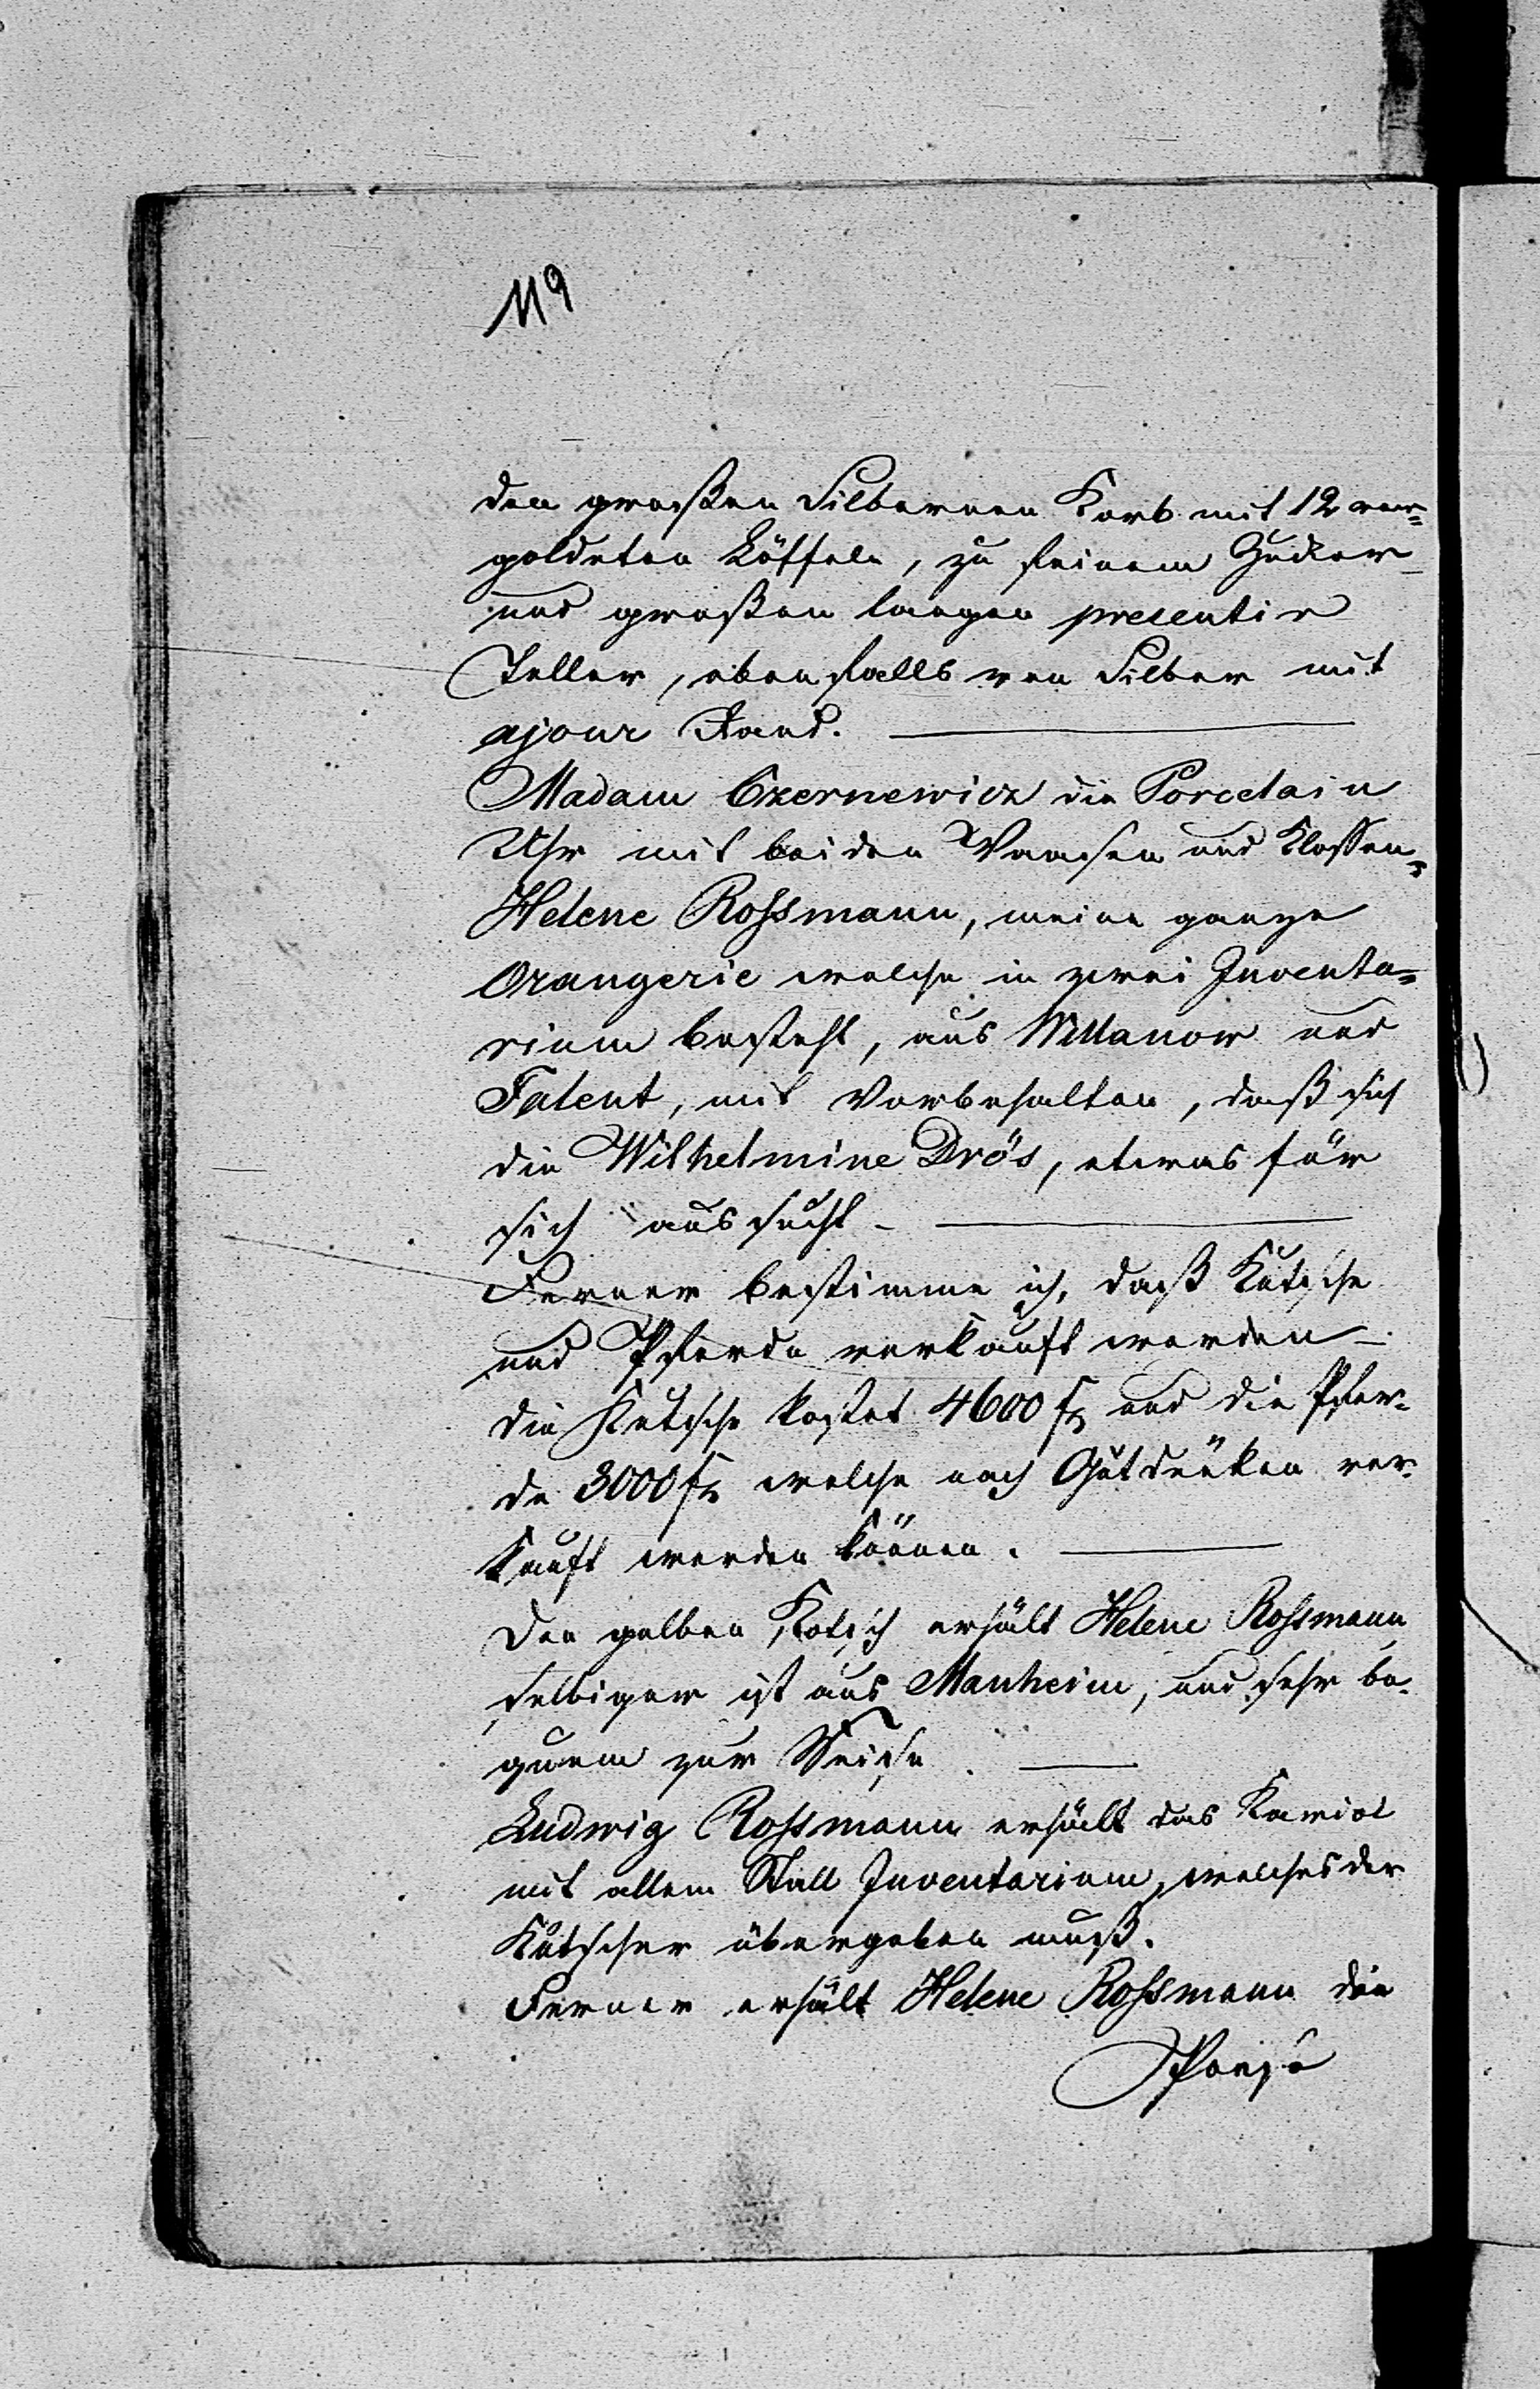 119
den großen Silbernen Korb mit 12 ver=
goldeten Löffeln, zu feinem Zucker
und großen langen presentir
Teller, ebenfalls von Silber mit
ajour Rand.
Madam Czernewicz die Porcelain
Uhr mit beiden Vaasen und
Helene Roſsmann, meine ganze
Orangerie welche in zwei Inventa=
rium besteht, aus Willanow und
Falent, mit Vorbehalten, daß sich
die Wilhelmine Drös, etwas für
sich aussucht
Ferner bestimme ich, daß Kutsche
und Pferde verkauft werden
die Kutsche kostet 4600 f und die Pfer=
de 3000 f welche nach Gutdünken ver=
kauft werden können.
Den gelben Kotsch erhält Helene Roſsmann
selbiger ist aus Manheim, und sehr be=
quem zur Reise.
Ludwig Roſsmann erhält das Kariol
mit allem Stall Inventarium, welches der
Kutscher übergeben muß.
Ferner erhält Helene Roſsmann die